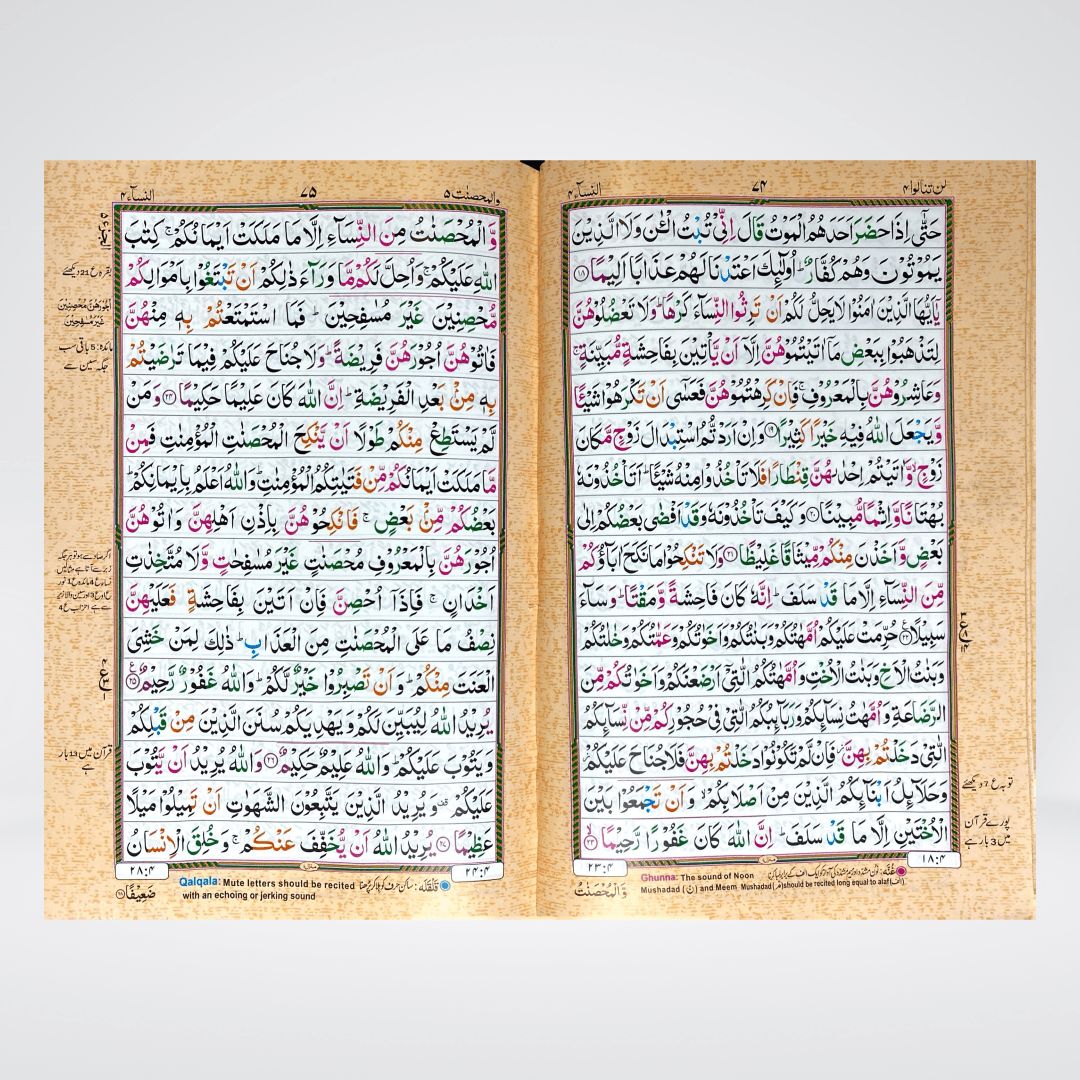 لن تنالوا ۴
۷۴
النسآء ۴
حَتّٰۤى اِذَا حَضَرَ اَحَدَهُمُ الْمَوْتُ قَالَ اِنِّىْ تُبْتُ الْـٰٔنَ وَلَا الَّذِيْنَ
يَمُوْتُوْنَ وَهُمْ كُفَّارٌ ؕ اُولٰٓئِكَ اَعْتَدْنَا لَهُمْ عَذَابًا اَلِيْمًا ﴿۱۸﴾
يٰۤاَيُّهَا الَّذِيْنَ اٰمَنُوْا لَا يَحِلُّ لَكُمْ اَنْ تَرِثُوا النِّسَآءَ كَرْهًا ؕ وَلَا تَعْضُلُوْهُنَّ
لِتَذْهَبُوْا بِبَعْضِ مَاۤ اٰتَيْتُمُوْهُنَّ اِلَّاۤ اَنْ يَّاْتِيْنَ بِفَاحِشَةٍ مُّبَيِّنَةٍ ۚ
وَعَاشِرُوْهُنَّ بِالْمَعْرُوْفِ ۚ فَاِنْ كَرِهْتُمُوْهُنَّ فَعَسٰۤى اَنْ تَكْرَهُوْا شَيْـًٔا
وَّيَجْعَلَ اللّٰهُ فِيْهِ خَيْرًا كَثِيْرًا ﴿۱۹﴾ وَاِنْ اَرَدْتُّمُ اسْتِبْدَالَ زَوْجٍ مَّكَانَ
زَوْجٍ ۙ وَّاٰتَيْتُمْ اِحْدٰىهُنَّ قِنْطَارًا فَلَا تَاْخُذُوْا مِنْهُ شَيْـًٔا ؕ اَتَاْخُذُوْنَهٗ
بُهْتَانًا وَّاِثْمًا مُّبِيْنًا ﴿۲۰﴾ وَكَيْفَ تَاْخُذُوْنَهٗ وَقَدْ اَفْضٰى بَعْضُكُمْ اِلٰى
بَعْضٍ وَّاَخَذْنَ مِنْكُمْ مِّيْثَاقًا غَلِيْظًا ﴿۲۱﴾ وَلَا تَنْكِحُوْا مَا نَكَحَ اٰبَآؤُكُمْ
مِّنَ النِّسَآءِ اِلَّا مَا قَدْ سَلَفَ ؕ اِنَّهٗ كَانَ فَاحِشَةً وَّمَقْتًا ؕ وَسَآءَ
سَبِيْلًا ﴿۲۲﴾ حُرِّمَتْ عَلَيْكُمْ اُمَّهٰتُكُمْ وَبَنٰتُكُمْ وَاَخَوٰتُكُمْ وَعَمّٰتُكُمْ وَخٰلٰتُكُمْ
وَبَنٰتُ الْاَخِ وَبَنٰتُ الْاُخْتِ وَاُمَّهٰتُكُمُ الّٰتِىْۤ اَرْضَعْنَكُمْ وَاَخَوٰتُكُمْ مِّنَ
الرَّضَاعَةِ وَاُمَّهٰتُ نِسَآئِكُمْ وَرَبَآئِبُكُمُ الّٰتِىْ فِىْ حُجُوْرِكُمْ مِّنْ نِّسَآئِكُمُ
الّٰتِىْ دَخَلْتُمْ بِهِنَّ ؗ فَاِنْ لَّمْ تَكُوْنُوْا دَخَلْتُمْ بِهِنَّ فَلَا جُنَاحَ عَلَيْكُمْ ؗ
وَحَلَآئِلُ اَبْنَآئِكُمُ الَّذِيْنَ مِنْ اَصْلَابِكُمْ ۙ وَاَنْ تَجْمَعُوْا بَيْنَ
الْاُخْتَيْنِ اِلَّا مَا قَدْ سَلَفَ ؕ اِنَّ اللّٰهَ كَانَ غَفُوْرًا رَّحِيْمًا ﴿۲۳﴾
توبہ ع 7 دیکھئے
پورے قرآن
میں 3 بار ہے
۱۸:۴
منزل۱
۲۳:۴
Ghunna: The sound of Noon
Mushadad (نّ) and Meem Mushadad (مّ) should be recited long equal to alaf (الف)
وَّالْمُحْصَنٰتُ
والمحصنٰت ۵
۷۵
النسآء ۴
وَّالْمُحْصَنٰتُ مِنَ النِّسَآءِ اِلَّا مَا مَلَكَتْ اَيْمَانُكُمْ ۚ كِتٰبَ
اللّٰهِ عَلَيْكُمْ ۚ وَاُحِلَّ لَكُمْ مَّا وَرَآءَ ذٰلِكُمْ اَنْ تَبْتَغُوْا بِاَمْوَالِكُمْ
مُّحْصِنِيْنَ غَيْرَ مُسٰفِحِيْنَ ؕ فَمَا اسْتَمْتَعْتُمْ بِهٖ مِنْهُنَّ
فَاٰتُوْهُنَّ اُجُوْرَهُنَّ فَرِيْضَةً ؕ وَلَا جُنَاحَ عَلَيْكُمْ فِيْمَا تَرٰضَيْتُمْ
بِهٖ مِنْۢ بَعْدِ الْفَرِيْضَةِ ؕ اِنَّ اللّٰهَ كَانَ عَلِيْمًا حَكِيْمًا ﴿۲۴﴾ وَمَنْ
لَّمْ يَسْتَطِعْ مِنْكُمْ طَوْلًا اَنْ يَّنْكِحَ الْمُحْصَنٰتِ الْمُؤْمِنٰتِ فَمِنْ
مَّا مَلَكَتْ اَيْمَانُكُمْ مِّنْ فَتَيٰتِكُمُ الْمُؤْمِنٰتِ ؕ وَاللّٰهُ اَعْلَمُ بِاِيْمَانِكُمْ ؕ
بَعْضُكُمْ مِّنْۢ بَعْضٍ ۚ فَانْكِحُوْهُنَّ بِاِذْنِ اَهْلِهِنَّ وَاٰتُوْهُنَّ
اُجُوْرَهُنَّ بِالْمَعْرُوْفِ مُحْصَنٰتٍ غَيْرَ مُسٰفِحٰتٍ وَّلَا مُتَّخِذٰتِ
اَخْدَانٍ ۚ فَاِذَاۤ اُحْصِنَّ فَاِنْ اَتَيْنَ بِفَاحِشَةٍ فَعَلَيْهِنَّ
نِصْفُ مَا عَلَى الْمُحْصَنٰتِ مِنَ الْعَذَابِ ؕ ذٰلِكَ لِمَنْ خَشِىَ
الْعَنَتَ مِنْكُمْ ؕ وَاَنْ تَصْبِرُوْا خَيْرٌ لَّكُمْ ؕ وَاللّٰهُ غَفُوْرٌ رَّحِيْمٌ ﴿۲۵﴾
يُرِيْدُ اللّٰهُ لِيُبَيِّنَ لَكُمْ وَيَهْدِيَكُمْ سُنَنَ الَّذِيْنَ مِنْ قَبْلِكُمْ
وَيَتُوْبَ عَلَيْكُمْ ؕ وَاللّٰهُ عَلِيْمٌ حَكِيْمٌ ﴿۲۶﴾ وَاللّٰهُ يُرِيْدُ اَنْ يَّتُوْبَ
عَلَيْكُمْ ۫ وَيُرِيْدُ الَّذِيْنَ يَتَّبِعُوْنَ الشَّهَوٰتِ اَنْ تَمِيْلُوْا مَيْلًا
عَظِيْمًا ﴿۲۷﴾ يُرِيْدُ اللّٰهُ اَنْ يُّخَفِّفَ عَنْكُمْ ۚ وَخُلِقَ الْاِنْسَانُ
بقرہ ع 21 دیکھئے
اُجُوْرَهُنَّ مُحْصِنِيْنَ
غَيْرَ مُسٰفِحِيْنَ
مائدہ: 5 باقی سب
جگہ سین سے
قرآن میں 13 بار
ہے
۲۴:۴
منزل۱
۲۸:۴
Qalqala: Mute letters should be recited
with an echoing or jerking sound
ضَعِيْفًا ﴿۲۸﴾